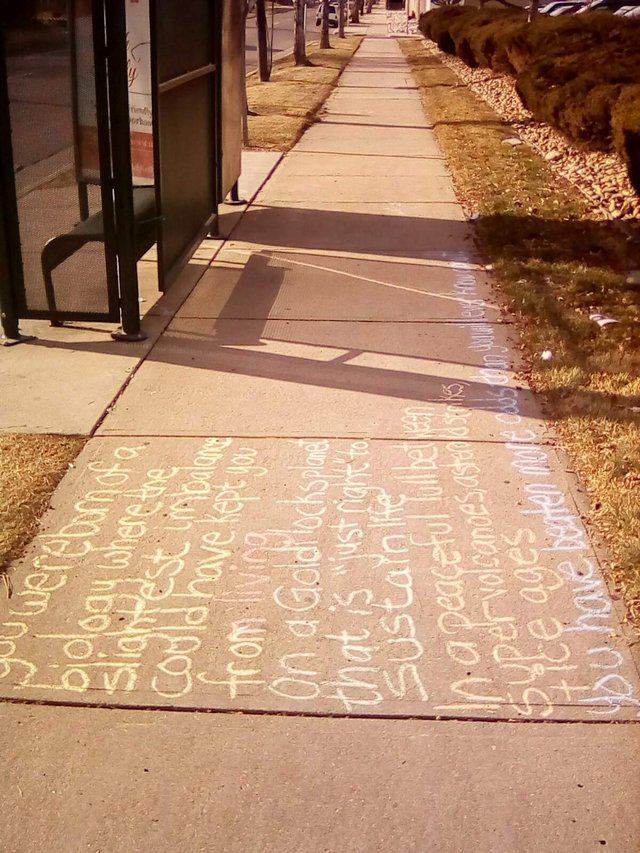 you were born of a
biology where the
slightest imbalance
could have kept you
from living
on a Goldilocks planet
that is "just right" to
sustain life
In a peaceful lull between
super volcanoes, asteroid strikes,
+ Ice ages
you have beaten more odds than you'll ever know